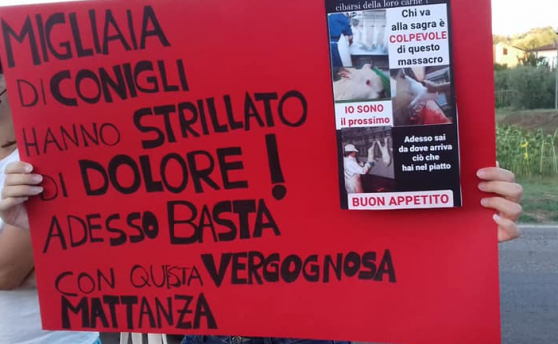 MIGLIAIA
DI CONIGLI
HANNO STRILLATO
DI DOLORE!
ADESSO BASTA
CON QUESTA VERGOGNOSA
MATTANZA
cibarsi della loro carne
Chi va
alla sagra è
COLPEVOLE
di questo
massacro
IO SONO
il prossimo
Adesso sai
da dove arriva
ciò che
hai nel piatto
BUON APPETITO